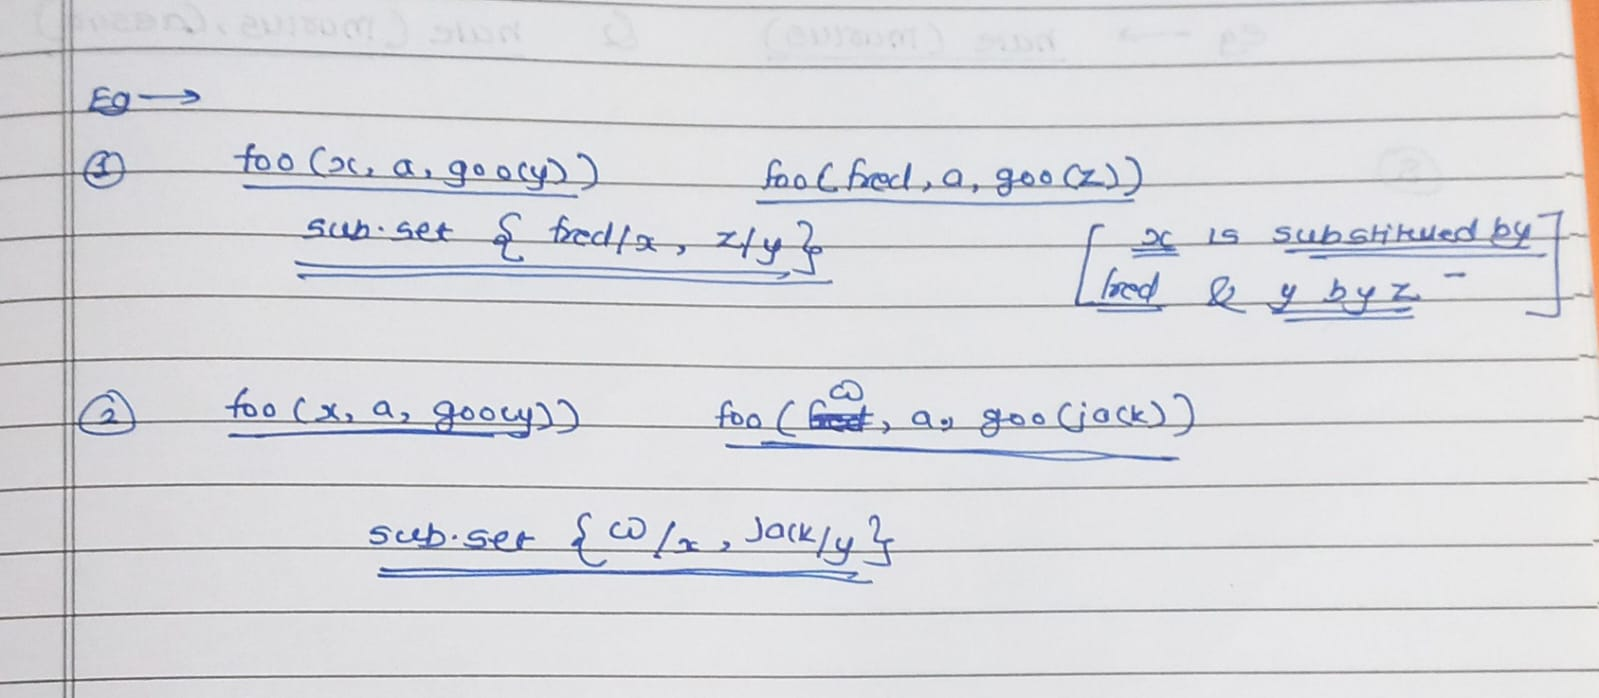 Eg →
① foo (x, a, goo(y)) foo (fred, a, goo (z))
sub. set { fred/x, z/y } [ x is substitued by
fred & y by z ]
② foo (x, a, goo(y)) foo (w, a, goo (jack))
sub. set { w/x, Jack/y }